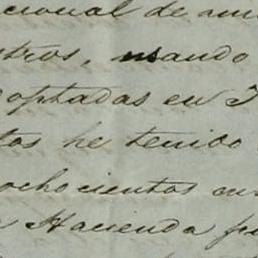 cional de
ntros, usando
optadas en
tos he tenido
ochocientos
Hacienda